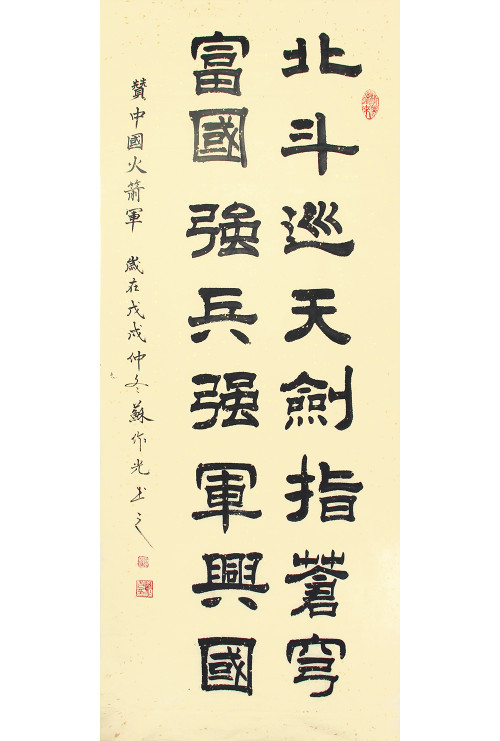 北斗巡天劍指蒼穹
富國强兵强軍興國
贊中國火箭軍 歲在戊戌仲冬蘇作光书之